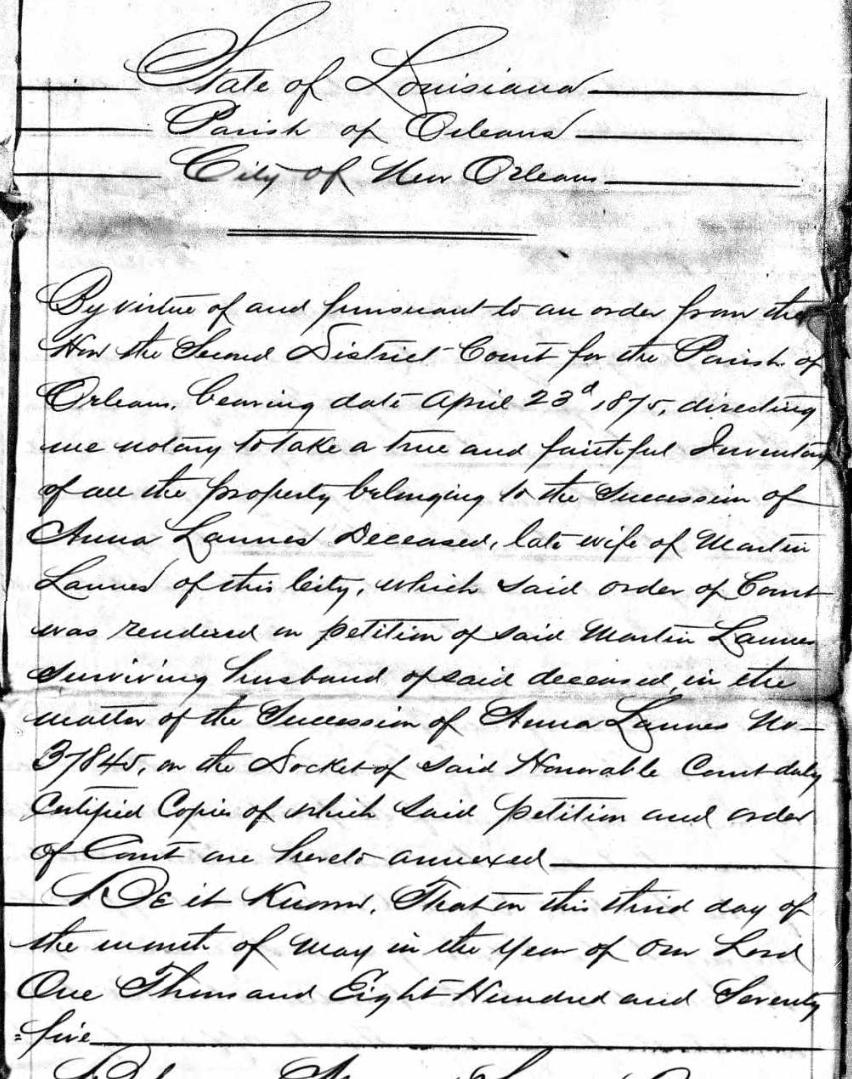 State of Louisiana
Parish of Orleans
City of New Orleans
By virtue of and pursuant to an order from the
Hon the Second District Court for the Parish of
Orleans, bearing date April 23d 1875, directing
me notary to take a true and faithful Inventory
of all the property belonging to the Succession of
Anna Lannes Deceased, late wife of Martin
Lannes of this City, which said order of Court
was rendered on petition of said Martin Lannes
surviving husband of said deceased, in the
matter of the Succession of Anna Lannes No
37845, on the Docket of said Honorable Court duly
Certified Copies of which said petition and order
of Court are hereto annexed
Be it Known, That on this third day of
the month of May in the Year of Our Lord
One Thousand Eight Hundred and Seventy
=five